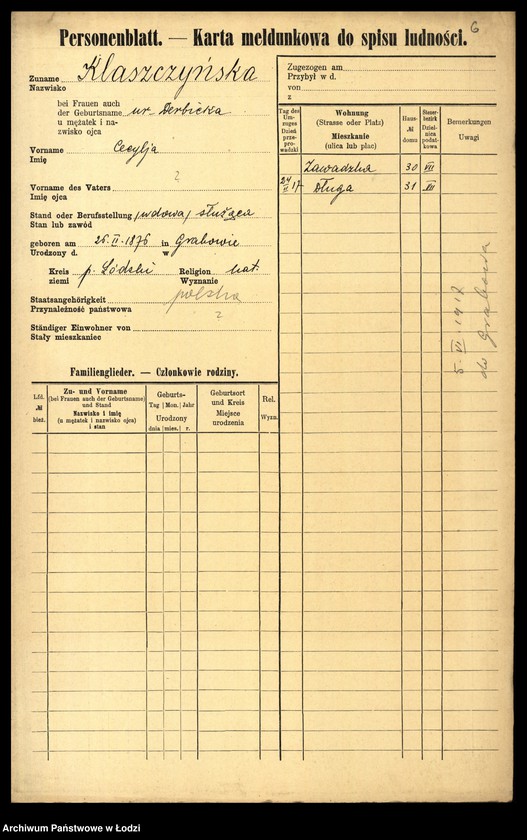 6
Personenblatt. — Karta meldunkowa do spisu ludności.
Zuname Klaszczyńska
Nazwisko
bei Frauen auch
der Geburtsname ur. Derbicka
u mężatek i na-
zwisko ojca
Vorname Cecylja
Imię
?
Vorname des Vaters
Imię ojca
Stand oder Berufsstellung (wdowa) służąca
Stan lub zawód
geboren am 25.II.1876 in Grabowie
Urodzony d. w
Kreis p. Łódzki Religion kat.
ziemi Wyznanie
Staatsangehörigkeit polska
Przynależność państwowa
?
Ständiger Einwohner von
Stały mieszkaniec
Zugezogen am
Przybył w d.
von
z
Tag des Um-zuges Dzień prze-prowadzki
Wohnung
(Strasse oder Platz)
Mieszkanie
(ulica lub plac)
Haus- № domu
Steuer-bezirk Dziel-nica podat-kowa
Bemerkungen
Uwagi
Zawadzka 30 VII
24/II 17 Długa 31 VII
5.VI.1917
do Grabowa
Familienglieder. — Członkowie rodziny.
Lfd. № bież.
Zu- und Vorname
(bei Frauen auch der Geburtsname)
und Stand
Nazwisko i imię
(u mężatek i nazwisko ojca)
i stan
Geburts-
Tag Mon. Jahr
Urodzony
dnia mies. r.
Geburtsort
und Kreis
Miejsce
urodzenia
Rel.
Wyzn.
Archiwum Państwowe w Łodzi